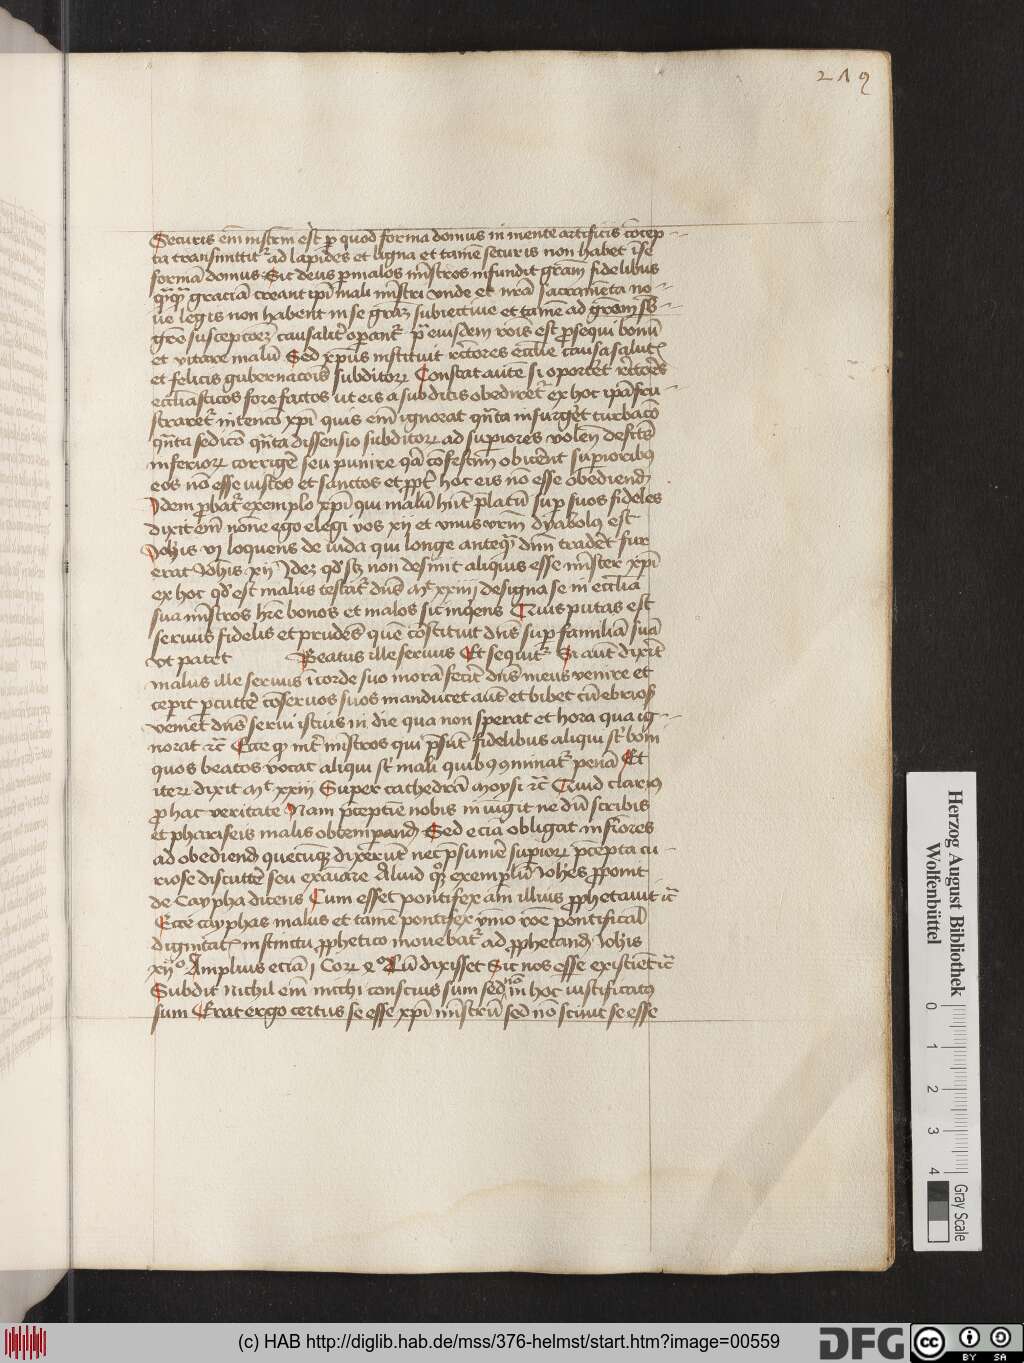 219
Securis em̄ instr̄m est ꝑ quod forma domus in mente artificis ꝯcep
ta transmittitr ad lapides et ligna et tamē securis non habet ī se
formā domus Sic deus ꝑ malos mīstros infundit grām fidelibus
graciā creant ip̄i mali mīstri vnde et nrā sacramēta no
ue legis non habent in se subiectiue et tamē ad grām
causalit̄ oꝑant eiusdem est ꝓsequi bonū
et vitare malū Sed xp̄us instituit rectores eccl̄ie causa salut
et felicis gubernacōis subditoꝝ Constat autē si oportet rectores
eccl̄iasticos fore factos ut eis a subditis obediretr ex hoc ip̄a fru
straretr intencō xp̄i quis em̄ ignorat qn̄ta insurget turbacō
qn̄ta sedicō qn̄ta dissensio subditoꝝ ad suꝑiores
inferioꝝ corrigē seu punire ꝯfestim obicent suꝑioribꝰ
eos nō esse iustos et sanctos et ꝓpt hoc eis nō esse obediend
Idem ꝓbatr exemplo xp̄i qui malū hūit p̄latū suꝑ suos fideles
dixit em̄ nōne ego elegi vos xij et vnus vr̄m dyabolꝰ est
Ioh̄is vj loquens de iuda qui longe anteq̄ dn̄m traderet fur
erat Ioh̄is xij non desinit aliquis esse mīster xp̄i
ex hoc qd est malus testatr dn̄s Mt xxiiij designās se in eccl̄ia
sua mīstros hr̄e bonos et malos sic inquiens Quis putas est
seruus fidelis et prudēs quē cōstituit dn̄s suꝑ familiā suā
vt patet Beatus ille seruus Et sequitr Si aut dixit
malus ille seruus ī corde suo morā fecit dn̄s meus venire et
ceꝑit ꝑcuttere ꝯseruos suos manducet aut et bibet cū ebriosꝭ
veniet dn̄s serui istius in die qua non sperat et hora qua ig
norat ⁊c̄ Ecce ꝙ int mīstros qui p̄sūt fidelibus aliqui st bonī
quos beatos vocat aliqui st mali quibꝰ ꝯminatr penā Et
iteꝝ dixit Mt xxiij Super cathedrā Moysi ⁊c̄ Quid clariꝰ
ꝓ hac veritate Nam p̄ceptiē nobis iniūgit ne dū scribis
et phariseis malis obtemꝑand Sed eciā obligat īnfīores
ad obediend quecūqꝫ dixerūt nec p̄sumē suꝑioꝝ p̄cepta cu
riose discutere seu exaīare Aliud exemplū Ioh̄es ꝓponit
de Caypha dicens Cum esset pontifex am̄ illius ꝓphetauit ⁊c̄
Ecce cayphas malus et tamē pontifex vīno rōe pontifical
dignitat instinctu ꝓphetico mouebatr ad ꝓphetand Ioh̄is
xjo Amplius eciā j Cor̄ 4o Cū dixisset Sic nos esse existiet ⁊c̄
Subdit Nichil em̄ michi conscius sum sed nō in hoc iustificatꝰ
sum Erat ergo certus se esse xp̄i mīstrū sed nō sciuit se esse
Herzog August Bibliothek
Wolfenbüttel
0 1 2 3 4
Gray Scale
(c) HAB http://diglib.hab.de/mss/376-helmst/start.htm?image=00559
DFG
cc
BY SA